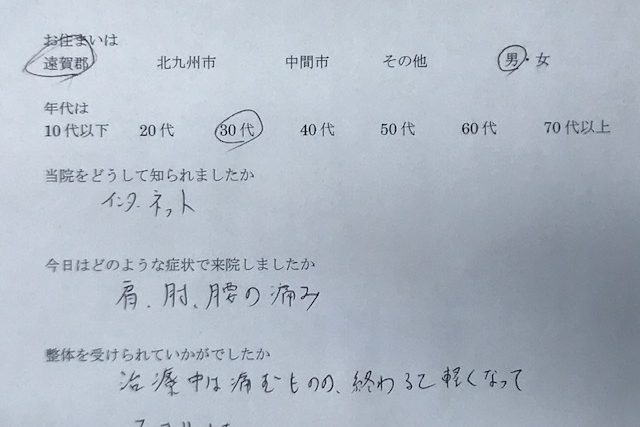 お住まいは
遠賀郡 北九州市 中間市 その他 男・女
年代は
10代以下 20代 30代 40代 50代 60代 70代以上
当院をどうして知られましたか
インターネット
今日はどのような症状で来院しましたか
肩、肘、腰の痛み
整体を受けられていかがでしたか
治療中は痛むものの、終わると軽くなって